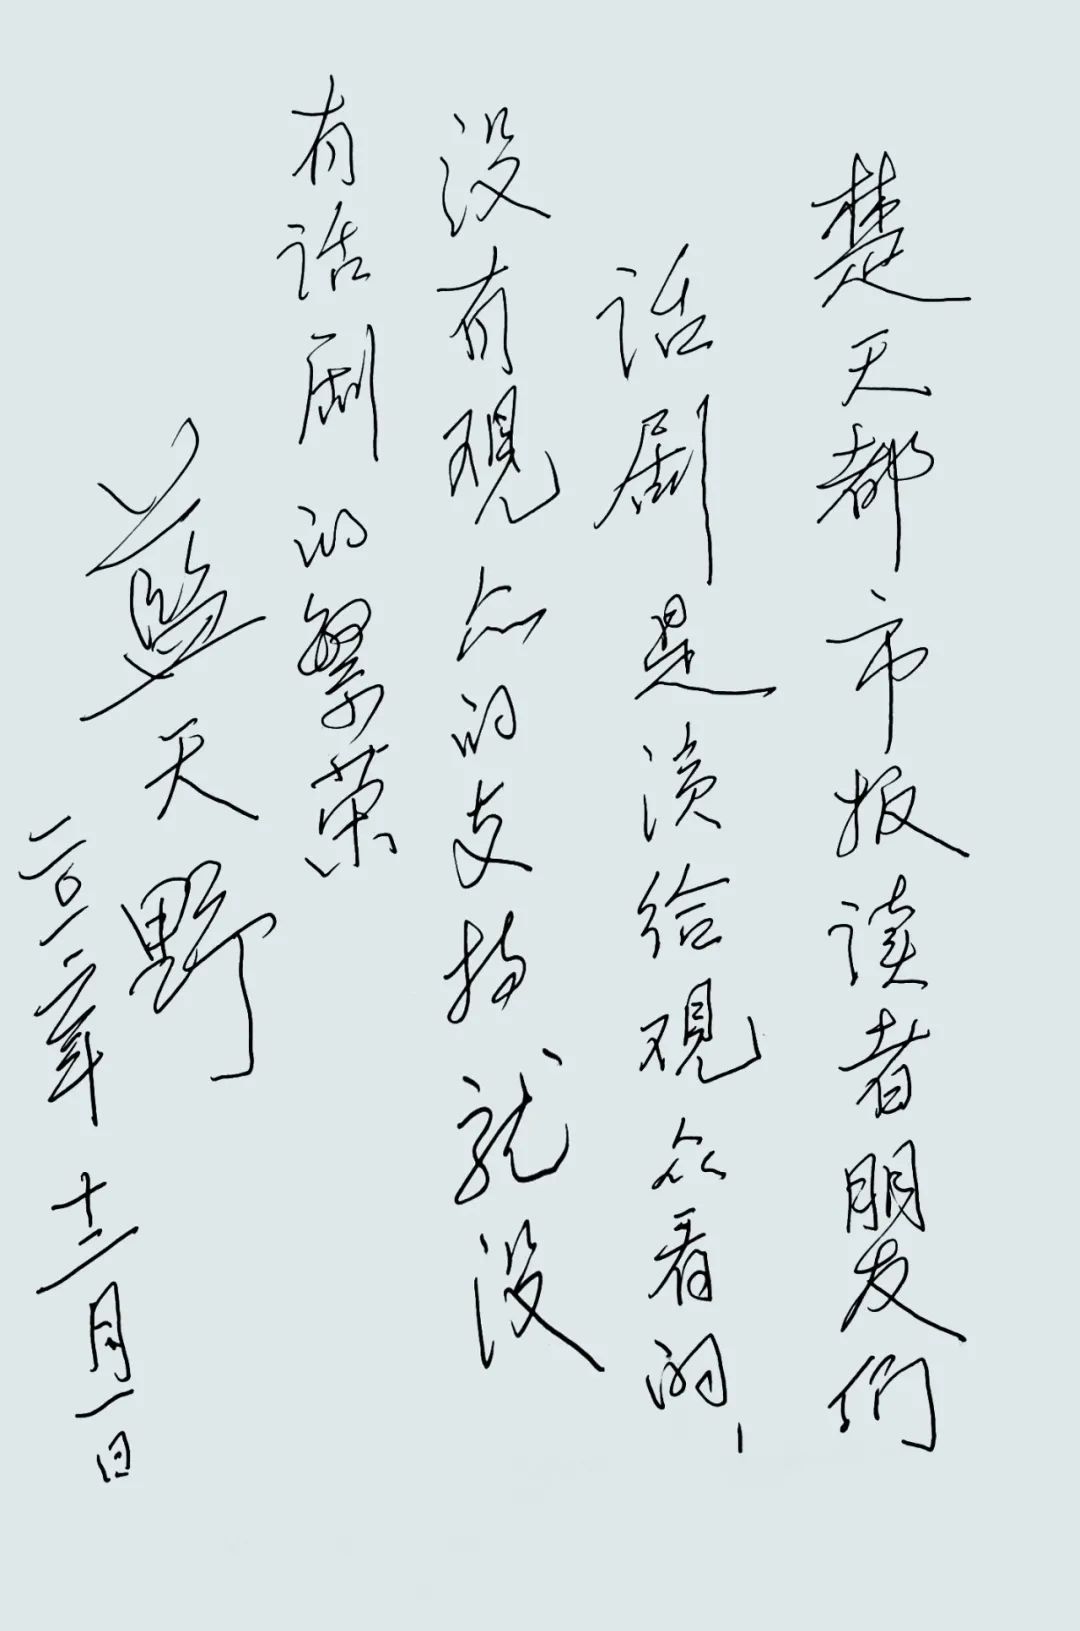 楚天都市报读者朋友们
话剧是演给观众看的，
没有观众的支持就没
有话剧的繁荣
蓝天野
二〇一二年十二月一日